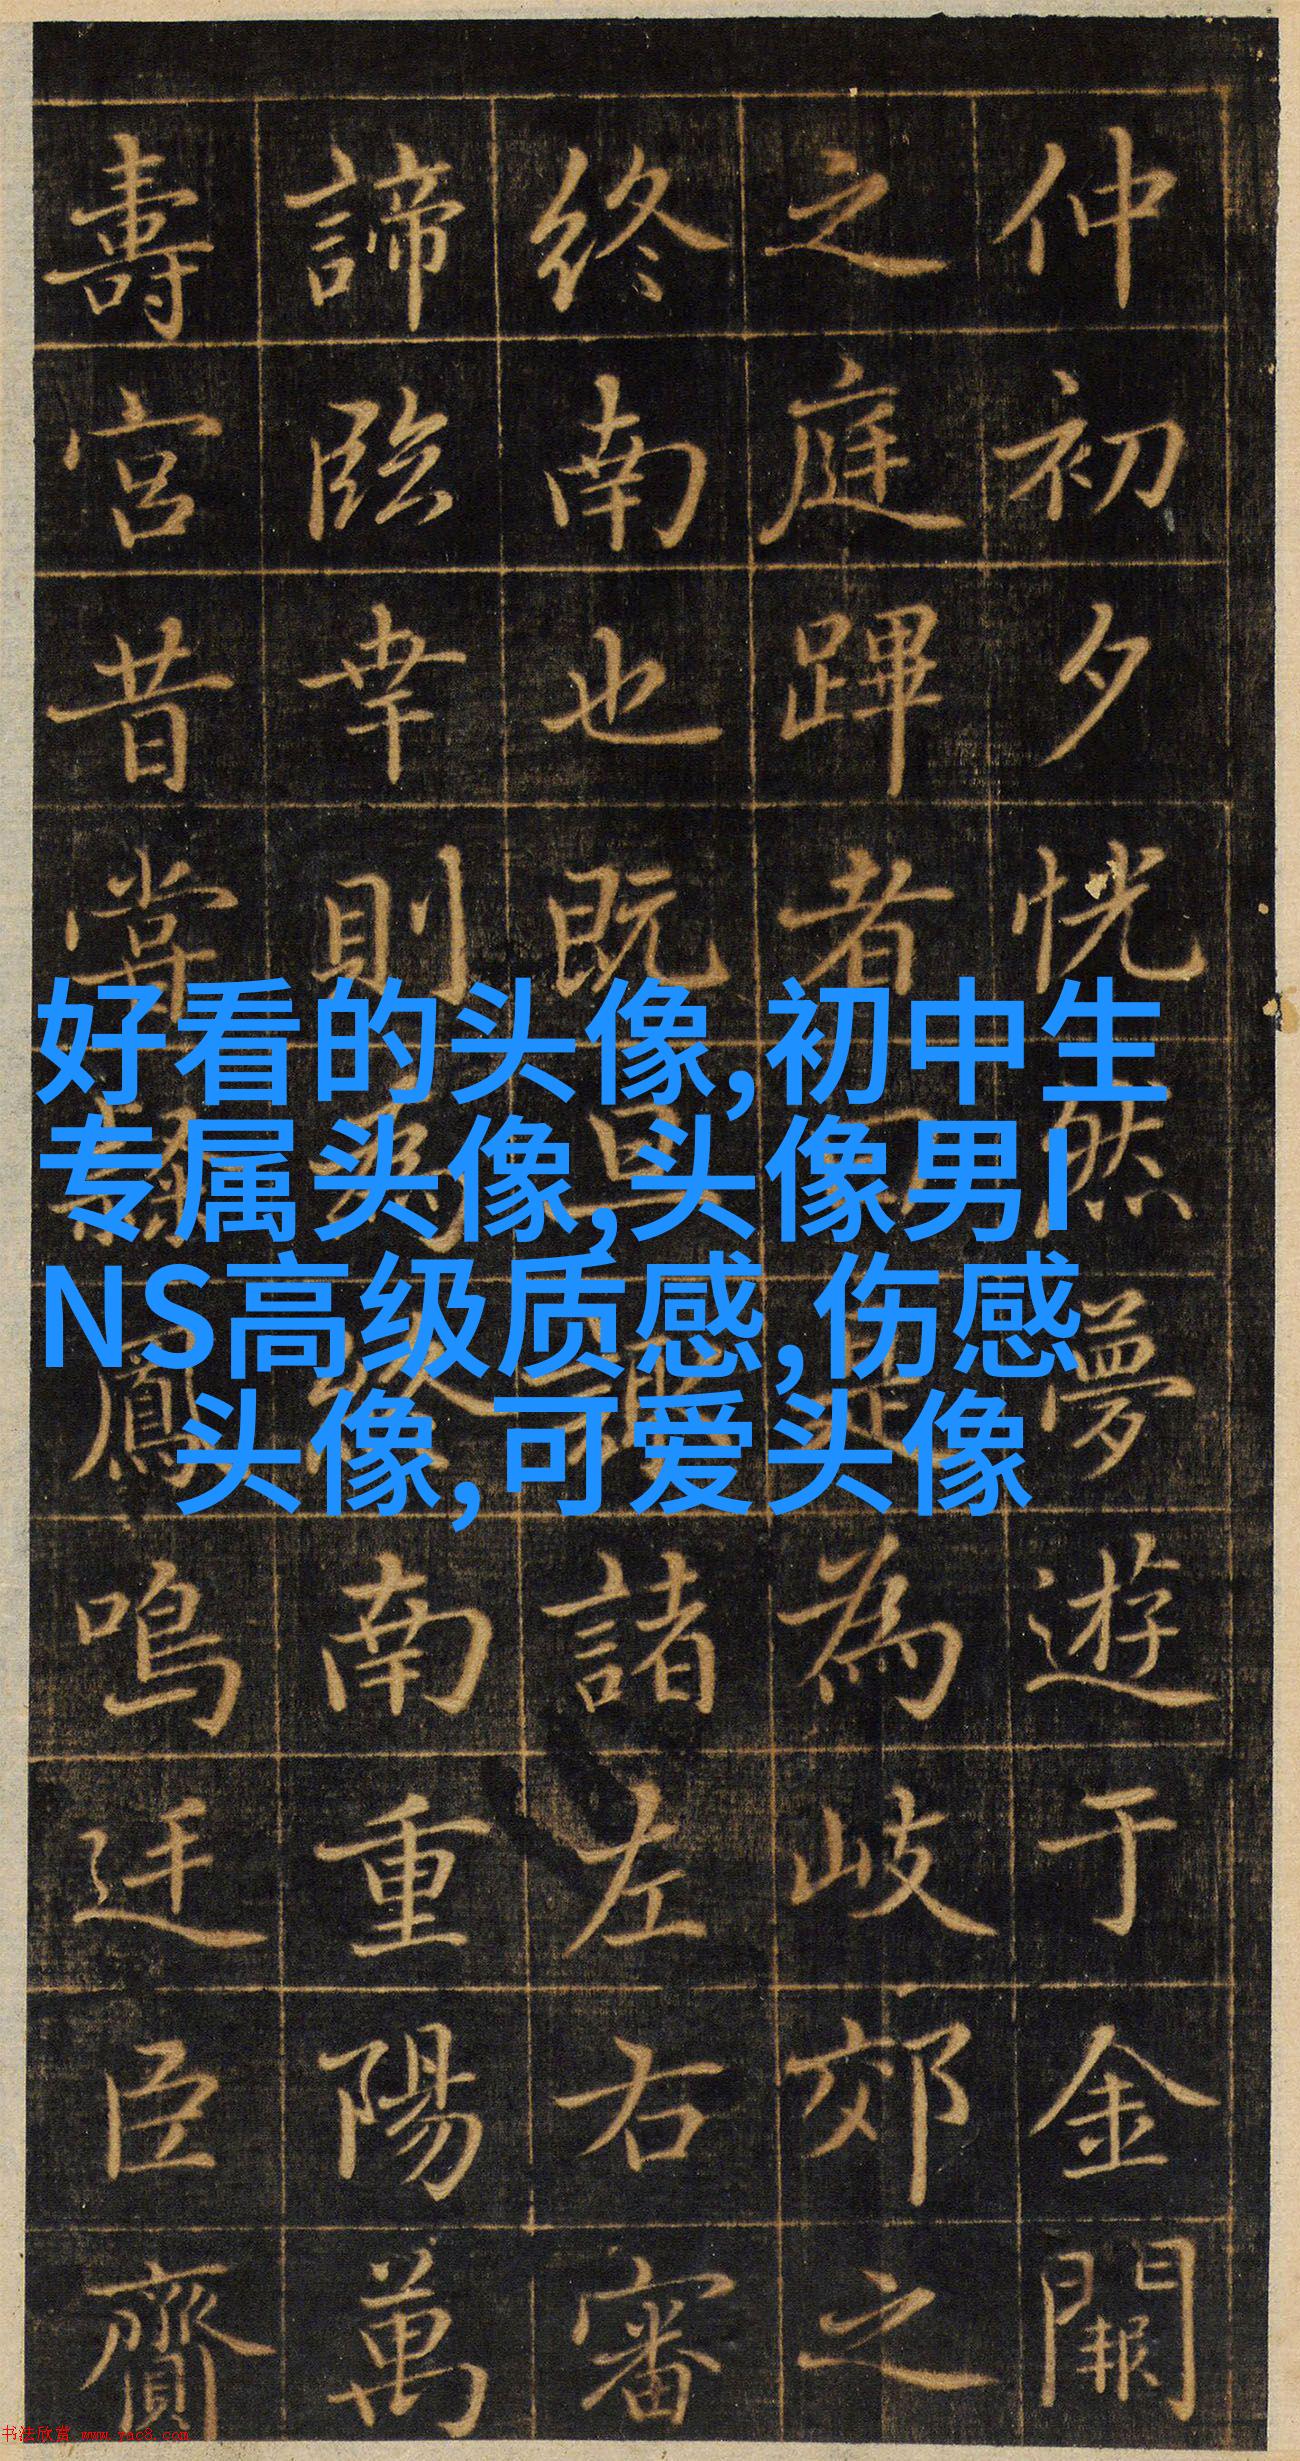 仲初夕恍然夢遊于金闕
之庭蹕者是為岐郊之
終南也既旦諸左右審
諦臨幸則終南重陽萬
壽宮昔嘗鳳鳴臣齎
好看的头像,初中生
专属头像,头像男I
NS高级质感,伤感
头像,可爱头像
书法欣赏 www.yac8.com